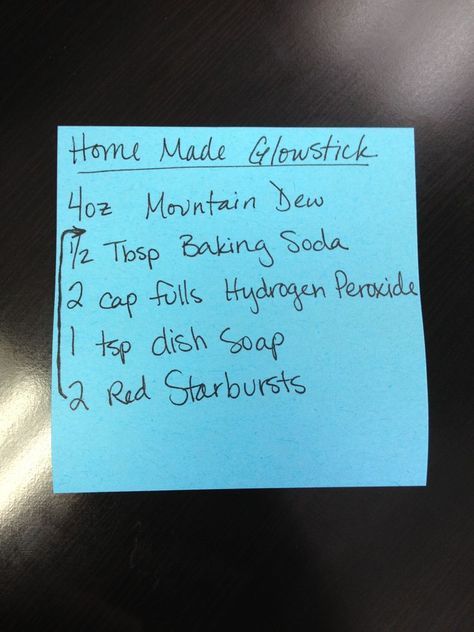 Home Made Glowstick
4oz Mountain Dew
1/2 Tbsp Baking Soda
2 cap fulls Hydrogen Peroxide
1 tsp dish Soap
2 Red Starbursts